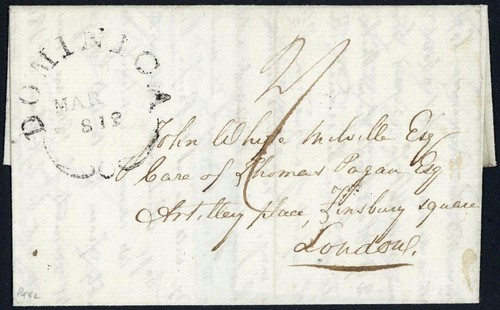 DOMINICA
MAR
812
John White Melville Esq
Care of Thomas Pagan Esq
Artillery place, Finsbury square
London.